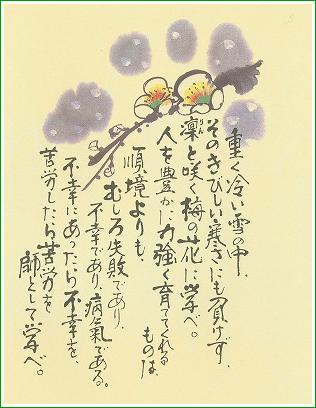 重く冷い雪の中、
そのきびしい寒さにも負けず、
凛と咲く梅の花に学べ。
りん
人を豊かに力強く育ててくれる
ものは、
順境よりも
むしろ失敗であり、
不幸であり、病氣である。
不幸にあったら不幸を、
苦労したら苦労を
師として学べ。